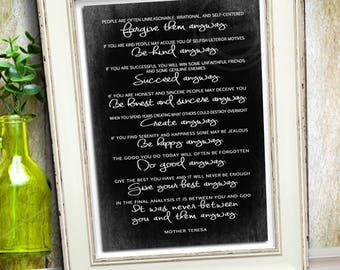 PEOPLE ARE OFTEN UNREASONABLE, IRRATIONAL, AND SELF-CENTERED
Forgive them anyway.
IF YOU ARE KIND PEOPLE MAY ACCUSE YOU OF SELFISH ULTERIOR MOTIVES
Be kind anyway.
IF YOU ARE SUCCESSFUL YOU WILL WIN SOME UNFAITHFUL FRIENDS
AND SOME GENUINE ENEMIES
Succeed anyway.
IF YOU ARE HONEST AND SINCERE PEOPLE MAY DECEIVE YOU
Be honest and sincere anyway.
WHEN YOU SPEND YEARS CREATING WHAT OTHERS COULD DESTROY OVERNIGHT
Create anyway.
IF YOU FIND SERENITY AND HAPPINESS SOME MAY BE JEALOUS
Be happy anyway.
THE GOOD YOU DO TODAY WILL OFTEN BE FORGOTTEN
Do good anyway.
GIVE THE BEST YOU HAVE AND IT WILL NEVER BE ENOUGH
Give your best anyway.
IN THE FINAL ANALYSIS IT IS BETWEEN YOU AND GOD
It was never between
you and them anyway.
MOTHER TERESA